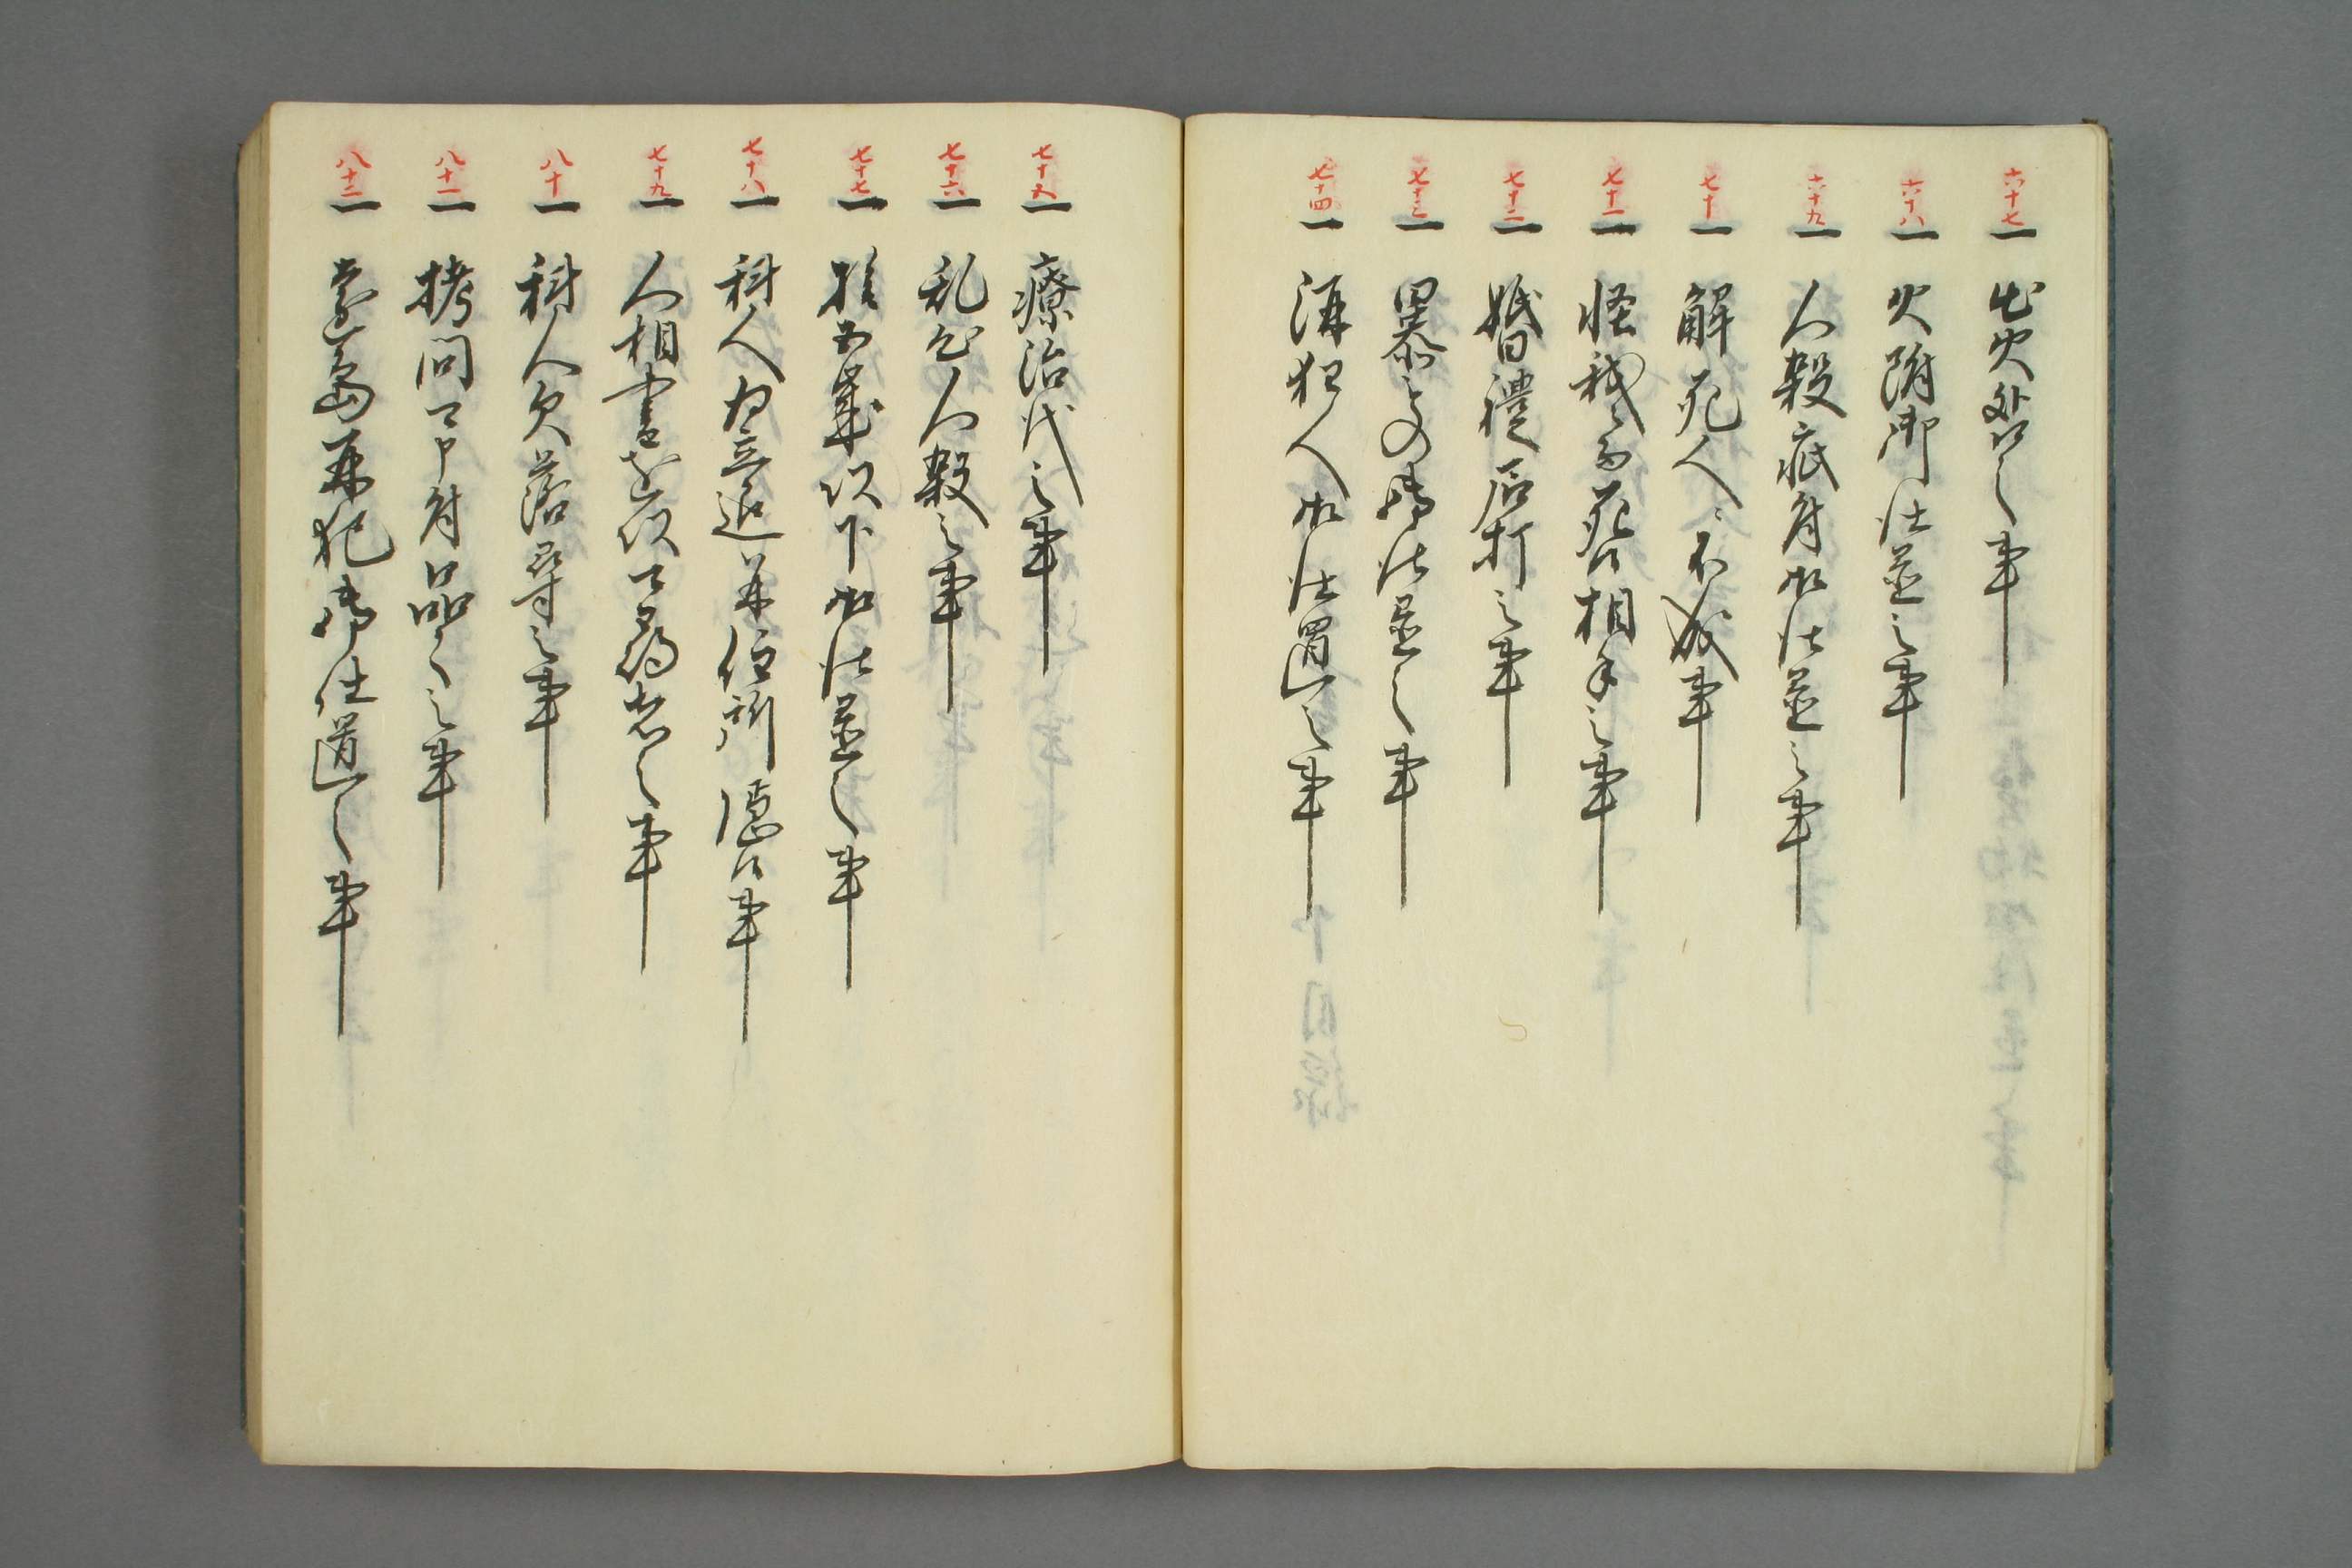 六十七 一 出火咎之事
六十八 一 火附御仕置之事
六十九 一 人殺疵付御仕置之事
七十 一 解死人ニ不成事
七十一 一 怪我ニ而死候相手之事
七十二 一 婚禮石打之事
七十三 一 暴もの御仕置之事
七十四 一 酒狂人御仕置之事
七十五 一 療治代之事
七十六 一 乱心人殺之事
七十七 一 拾五歳以下御仕置之事
七十八 一 科人為立退并住所隠候事
七十九 一 人相書を以可尋者之事
八十 一 科人欠落尋之事
八十一 一 拷問可申付品之事
八十二 一 遠島再犯御仕置之事